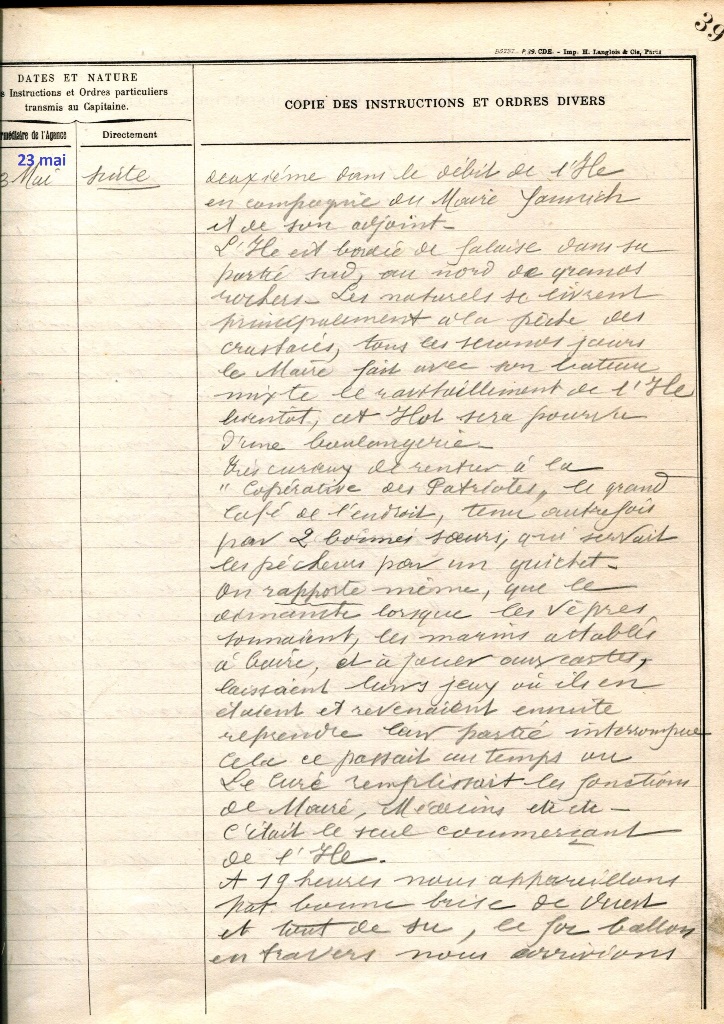 39
P 29. CDE. - Imp. H. Langlois & Cie, Paris
DATES ET NATURE
s Instructions et Ordres particuliers
transmis au Capitaine.
COPIE DES INSTRUCTIONS ET ORDRES DIVERS
rmédiaire de l'Agence
Directement
23 mai
3 Mai suite
deuxième dans le débit de l'Ile
en compagnie du Maire
et de son adjoint -
L'Ile est bordée de falaise dans sa
partie sud, au nord de grands
rochers - Les naturels se livrent
principalement à la pêche des
crustacés, tous les seconds jours
le Maire fait avec son bateau
mixte le ravitaillement de l'Ile
bientot, cet Ilot sera pourvu
d'une boulangerie -
très curieux de rentrer à la
" Copérative des Patriotes „ le grand
Café de l'endroit, tenu autrefois
par 2 bonnes sœurs, qui servait
les pêcheurs par un guichet -
On rapporte même, que le
dimanche lorsque les Vêpres
sonnaient, les marins attablés
à boire, et à jouer aux cartes,
laissaient leurs jeux où ils en
étaient et revenaient ensuite
reprendre leur partie interrompue
Cela ce passait au temps ou
Le Curé remplissait les fonctions
de Maire, Médecins etc etc -
C'était le seul commerçant
de l'Ile.
A 19 heures nous appareillons
par bonne brise de Ouest
et tout de su, le foc ballon
en travers nous arrivions